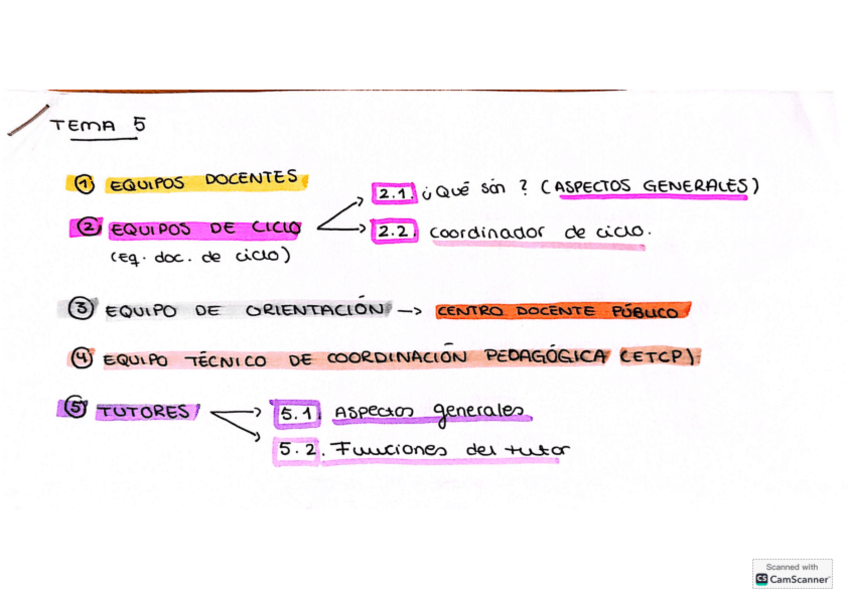 TEMA 5
① EQUIPOS DOCENTES
② EQUIPOS DE CICLO
(eq. doc. de ciclo)
2.1. ¿Qué són? (ASPECTOS GENERALES)
2.2. Coordinador de ciclo.
③ EQUIPO DE ORIENTACIÓN → CENTRO DOCENTE PÚBLICO
④ EQUIPO TÉCNICO DE COORDINACIÓN PEDAGÓGICA (ETCP)
⑤ TUTORES
5.1. Aspectos generales
5.2. Funciones del tutor
Scanned with
CS CamScanner